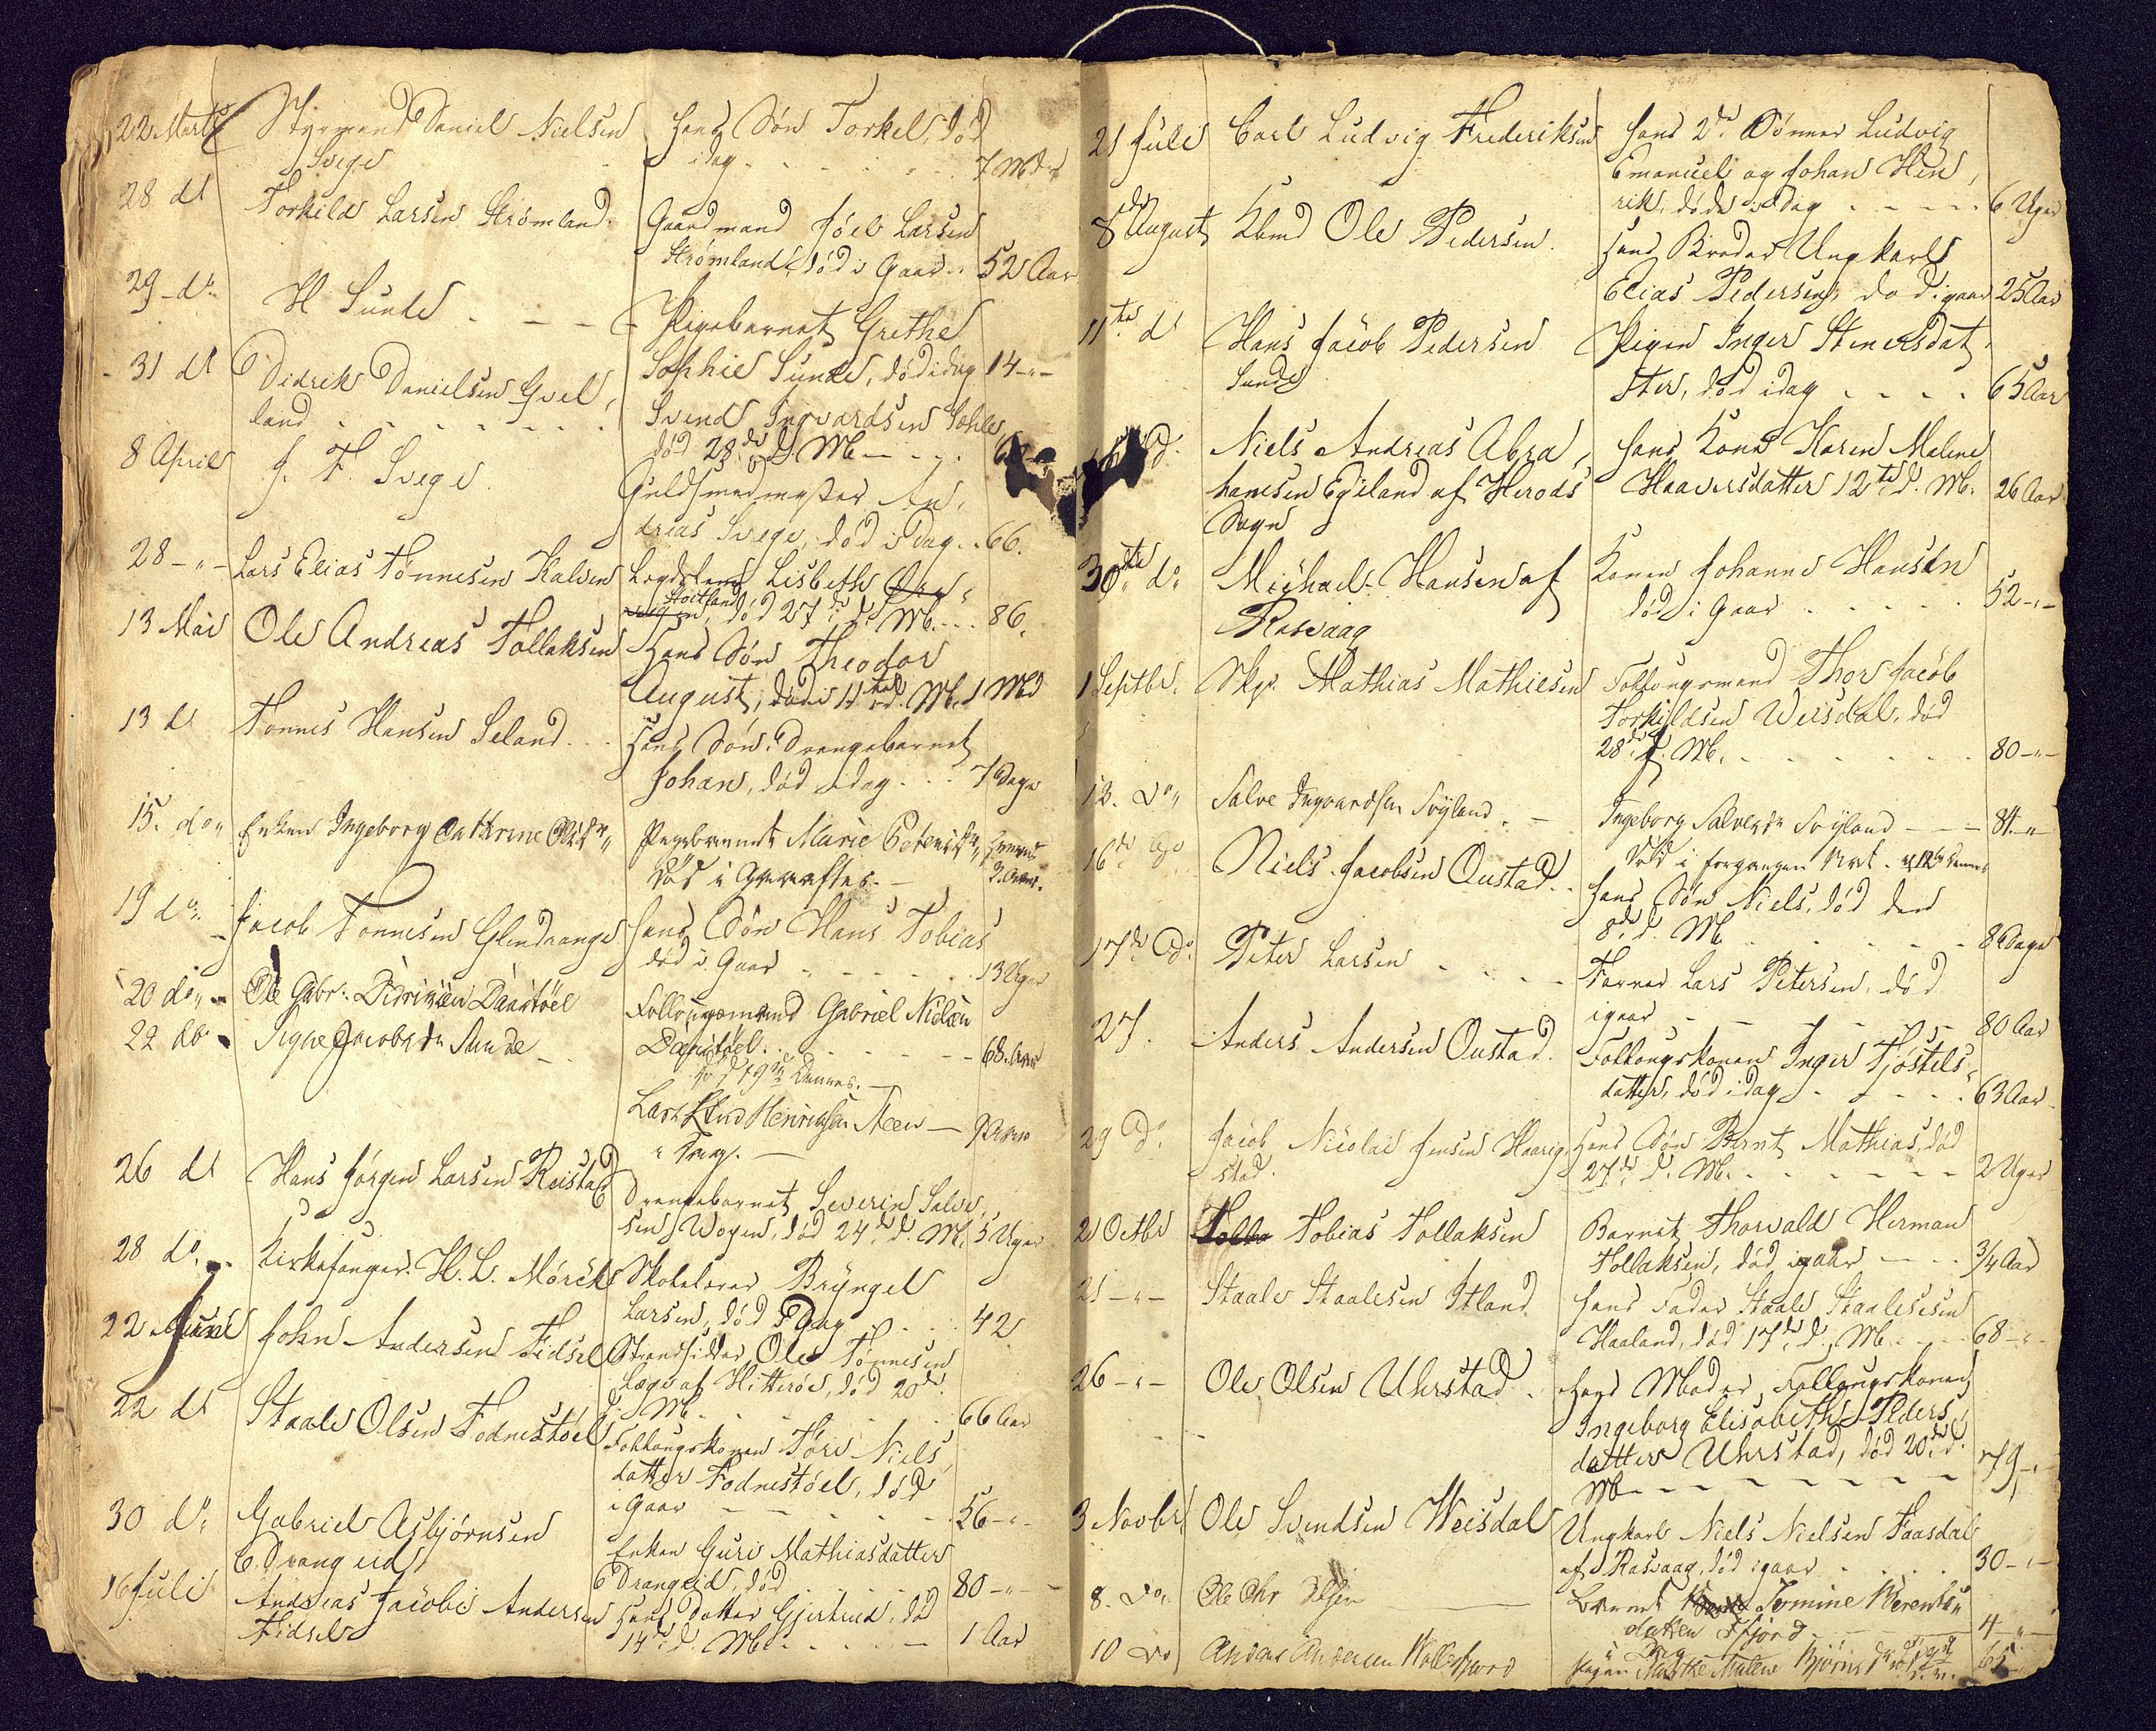 22 Marts Styrmand Daniel Nielsen Hans Søn Torkel, død
Svege idag 7 Mdr
28 dt Torkild Larsen Strømland Gaardmand Jöel Larsen
Strømland, død i Gaar 52 Aar
29 do H Sunde Pigebarnet Grethe
Sophie Sunde, død idag 14 -"-
31 dt Didrik Danielsen Qvel,
land Svend Ingvardsen
død 28de d. Mb
8 April J. F. Svege Guldsmedmester An,
dreas Svege, død i Dag 66.
28 -"- Lars Elias Tönnesen Kalven Lisbeth
død 27de d. Mb. 86.
13 Mai Ole Andreas Tollaksen Hans Søn Theodor
August, død 11te d. Mb. 1 Md
13 dt Tönnes Hansen Seland Hans Søn Drengebarnet
Johan, død idag 7 Dage
15. do Enken Ingeborg Cathrine Pigebarnet Marie
død i 2 Aar.
19 do Jacob Tönnesen Glendrange Hans Søn Hans Tobias
død i Gaar 13 Uger
20 do Ole Gabr: Didriksen Danstöel Follougsmand Gabriel Nielsen
Danstöel 68. Aar
død 19de Dennes.
22 do Signe Jacobsdr Sunde
Lars Henriksen Steen 9 Aar
i Dag.
26 dt Hans Jörgen Larsen Reistad Drengebarnet Severin Salve,
sen Wogen, død 24de d. M. 5 Uger
28 do Kirkesanger H. L. Mörck Skolelærer Bryngel
Larsen, død i Dag 42
22 Juni John Andersen Fidsel Strandsidder Ole Tönnesen
Læge af Hitteröe, død 20de
d. Mb. 66 Aar
22 dt Staale Olsen Fodnestöel Follougskonen Töre Niels,
datter Fodnestöel, død
i Gaar 56 -"-
30 do Gabriel Asbjörnsen Enken Guri Mathiasdatter
Drangeid Drangeid, død 80 -"-
16 Juli Andreas Jacobi Andersen Hans Datter Gjertrud, død
Fidsel 14de d. Mb. 1 Aar
21 Juli Carl Ludvig Frederiksen Hans 2de Sönner Ludvig
Emanuel og Johan Hen,
rik, døde i Dag 6 Uger
8de August Kbmd Ole Pedersen Hans Broder Ungkarl
Elias Pedersen, død igaar 25 Aar
11te dt Hans Jacob Pedersen Pigen Inger Stenersdat,
Sunde ter, død idag 65 Aar
d. Niels Andreas Abra, Hans Kone Karen Malene
hamsen Egeland af Herods Haaversdatter 12te d. Mb. 26 Aar
Sogn
30te do Michael Hansen af Konen Johanne Hansen
Rasvaag død i Gaar 52 -"-
1 Septbr. Skpr. Mathias Mathiesen Follougsmand Thor Jacob
Torkildsen Weisdal, død
28de f. Mb. 80 -"-
13. do Salve Ingvardsen Svyland Ingeborg Salvesdr Svyland 84 -"-
død i forgangen Nat
16de do Niels Jacobsen Oustad Hans Søn Niels, død den
8de d. Mb 8 Dage
17de do Peter Larsen Farver Lars Petersen, død
igaar 80 Aar
27. Anders Andersen Oustad Follougskonen Inger Tjöstels,
datter, død idag 63 Aar
29 do Jacob Nicolai Jensen Haarig, Hans Søn Bernt Mathias, død
stad 27de d. Mb. 2 Uger
2 Octbr Tobias Tollaksen Barnet Thorvald Herman
Tollaksen, død igaar 3/4 Aar
21 -"- Staale Staalesen Itland Hans Fader Staale Staalesen
Haaland, død 17de d. Mb 68 -"-
26 -"- Ole Olsen Uhrstad Hans Moder, Follougskonen
Ingeborg Elisabeth Peders,
datter Uhrstad, død 20de d.
Mb 79 -"-
3 Novbr. Ole Svendsen Weisdal Ungkarl Niels Nielsen Faasdal
af Rasvaag, død igaar 30 -"-
8. do Ole Chr Olsen Barnet Jermine Berents,
datter 4 -"-
i Dag
10 do Anders Andersen Wollesfjord Pigen Marthe Malene Björns 65